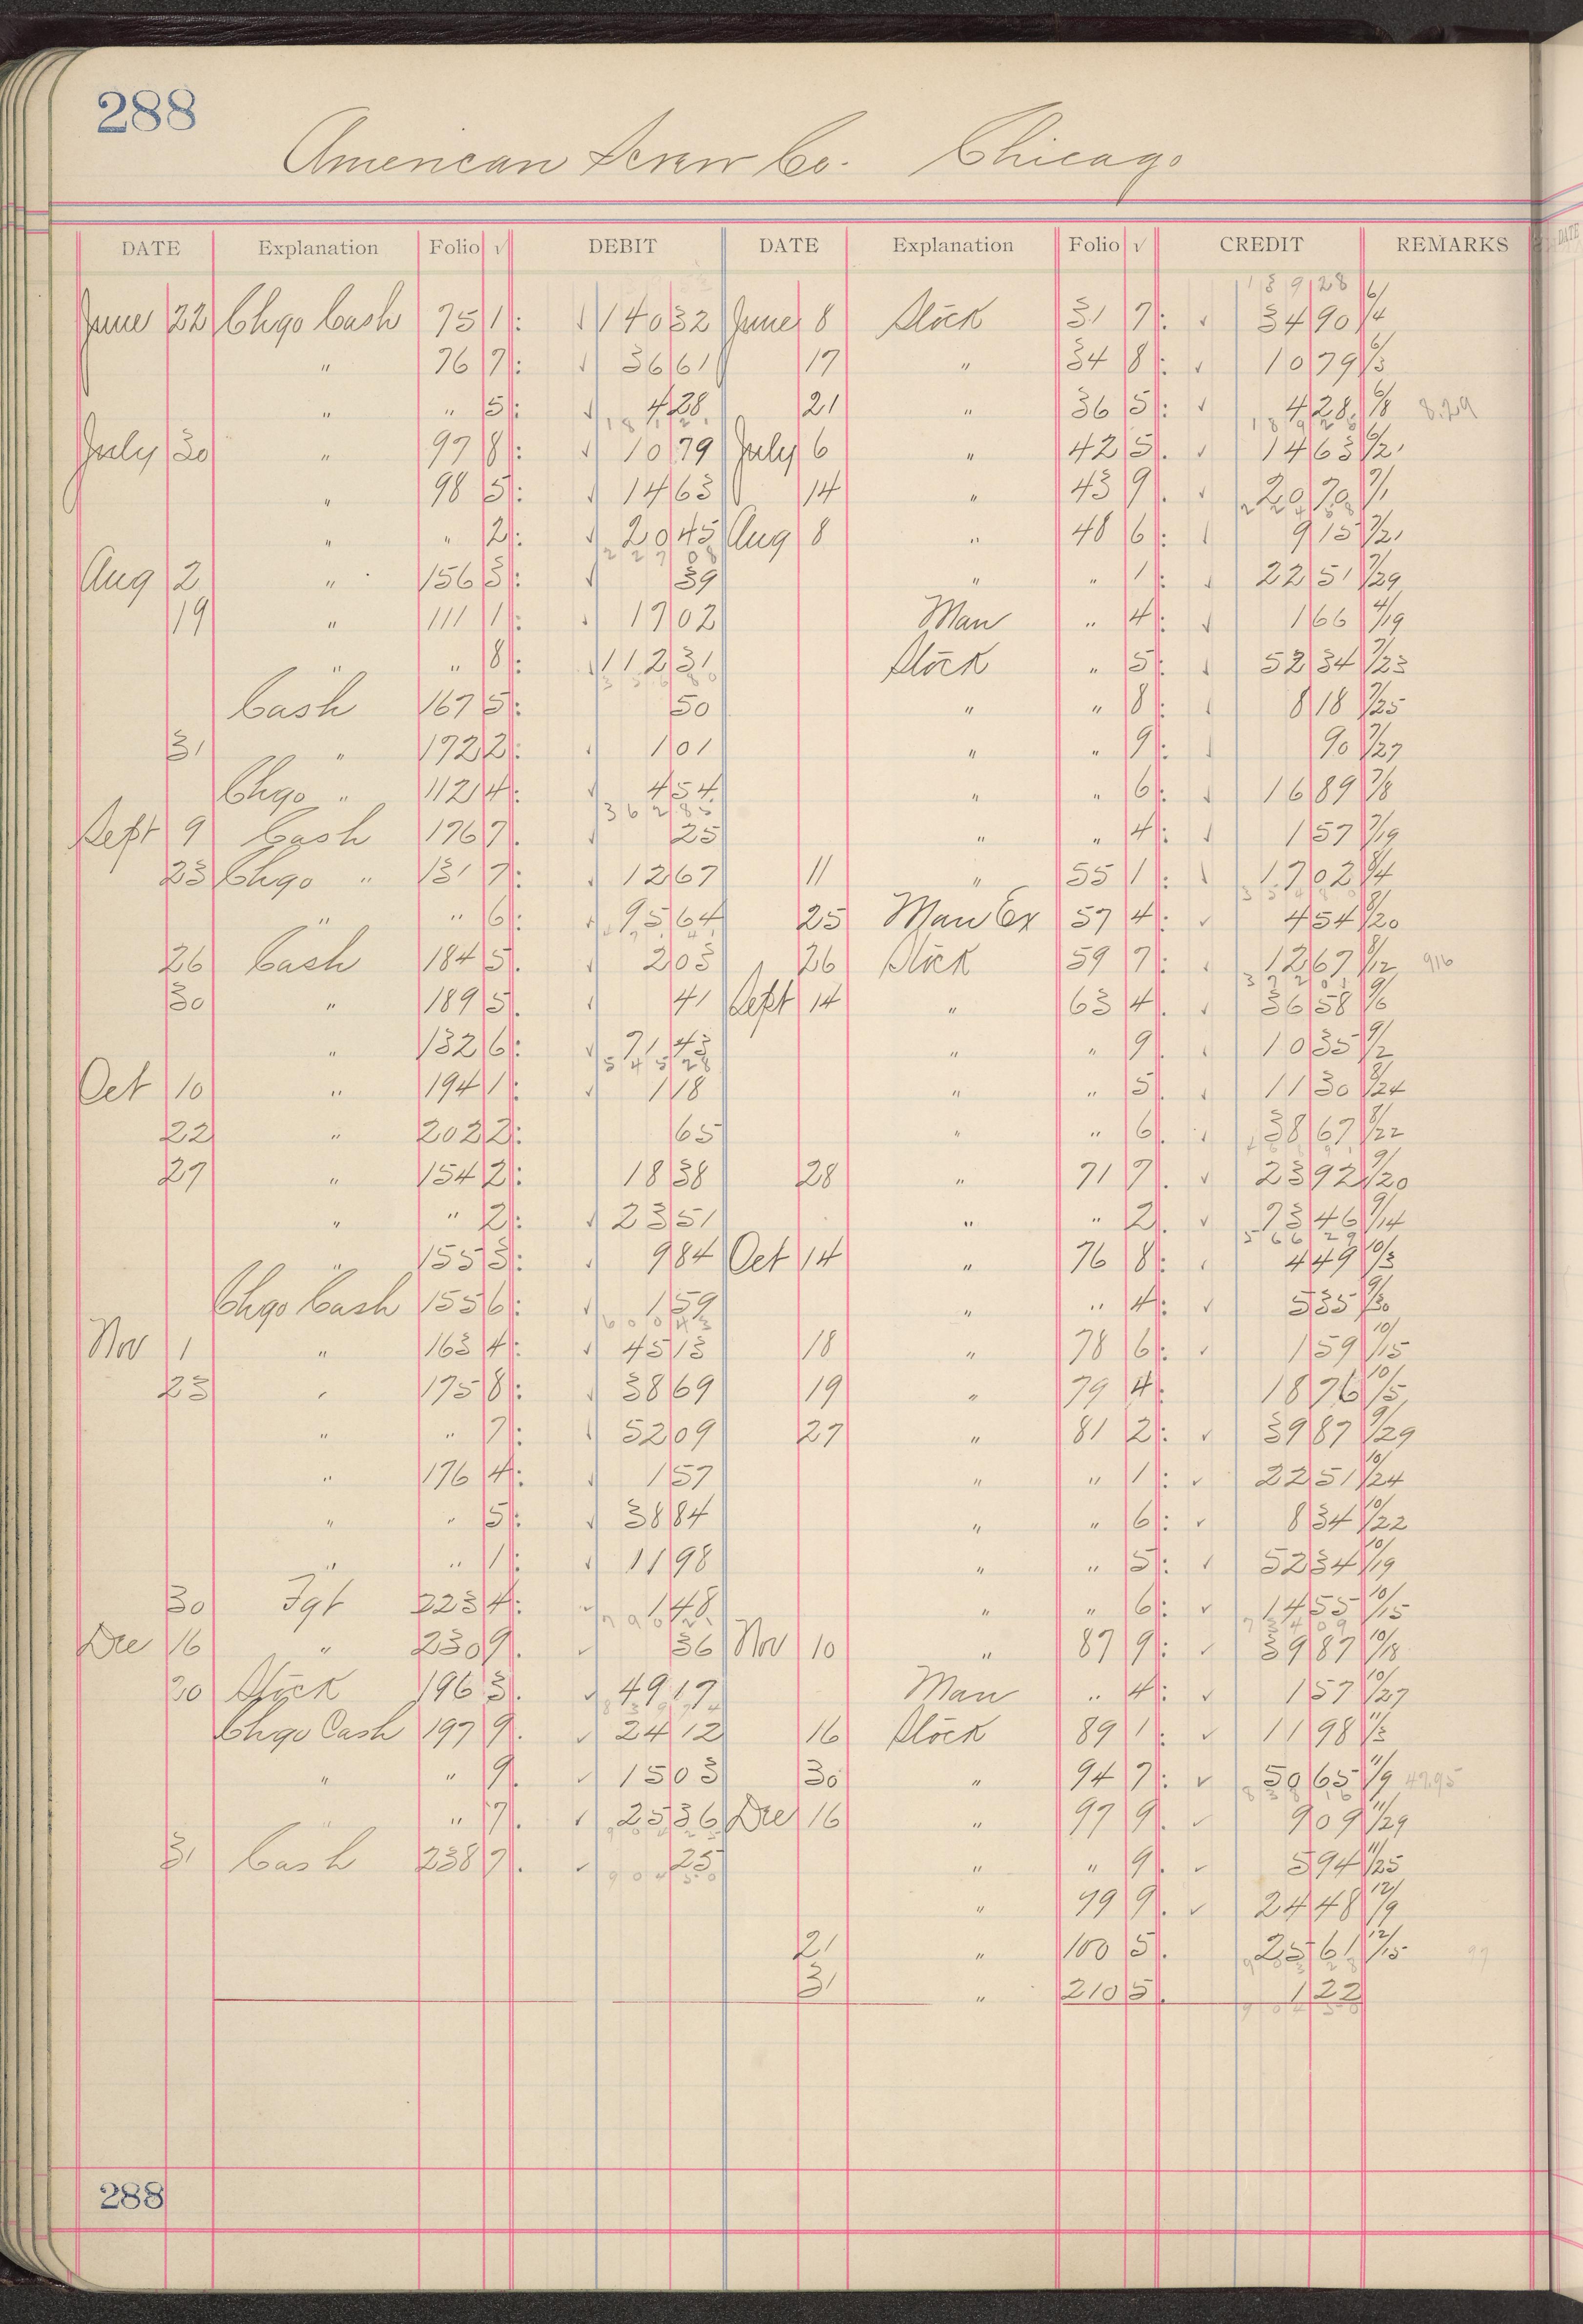 288
American Screw Co. Chicago
DATE Explanation Folio √ DEBIT DATE Explanation Folio √ CREDIT REMARKS
18928
June 22 Chgo Cash 75 1: √ 140 32 June 8 Stock 31 7: √ 34 90 6/4
" 76 7: √ 36 61 17 " 34 8: √ 10 79 6/3
" " 5: √ 4 28 21 " 36 5: √ 4 28 6/8 8.29
July 30 " 97 8: √ 10 79 July 6 " 42 5. √ 14 63 6/21
" 98 5: √ 14 63 14 " 43 9. √ 20 70 7/1
" " 2: √ 20 45 Aug 8 " 48 6: √ 9 15 7/21
22708
Aug 2 " 156 3: √ 39 " " 1: √ 22 51 7/29
19 " 111 1: √ 17 02 Man " 4: √ 1 66 4/19
" " 8: √ 112 31 Stock " 5: √ 52 34 7/23
Cash 167 5: 50 " " 8: √ 8 18 7/25
31 " 172 2: √ 1 01 " " 9: √ 90 7/27
Chgo " 112 4: √ 4 54 " " 6: √ 16 89 7/8
36285
Sept 9 Cash 176 7. √ 25 " " 4: √ 1 57 7/19
23 Chgo " 131 7: √ 12 67 11 " 55 1: √ 17 02 8/4
" " 6: √ 95 64 25 Man Ex 57 4: √ 4 54 8/20
26 Cash 184 5. √ 2 03 26 Stock 59 7: √ 12 67 8/12 916
30 " 189 5. √ 41 Sept 14 " 63 4: √ 36 58 9/6
" 132 6: √ 71 43 " " 9. √ 10 35 9/2
54528
Oct 10 " 194 1: √ 1 18 " " 5. √ 11 30 8/24
22 " 202 2: 65 " " 6. √ 38 67 8/22
27 " 154 2: 18 38 28 " 71 7. √ 23 92 9/20
" " 2: √ 23 51 " " 2. √ 73 46 9/14
56629
" 155 3: √ 9 84 Oct 14 " 76 8: √ 4 49 10/3
Chgo Cash 155 6: √ 1 59 " " 4: √ 5 35 9/30
60043
Nov 1 " 163 4: √ 45 13 18 " 78 6: √ 1 59 10/15
23 " 175 8: √ 38 69 19 " 79 4: 18 76 10/5
" " 7: √ 52 09 27 " 81 2: √ 39 87 9/29
" 176 4: √ 1 57 " " 1: √ 22 51 10/24
" " 5: √ 38 84 " " 6: √ 8 34 10/22
" " 1: √ 11 98 " " 5: √ 52 34 10/19
30 Fgt 223 4: √ 1 48 " " 6: √ 14 55 10/15
Dec 16 " 230 9. √ 36 Nov 10 " 87 9: √ 39 87 10/18
20 Stock 196 3. √ 49 17 Man " 4: √ 1 57 10/27
Chgo Cash 197 9. √ 24 12 16 Stock 89 1: √ 11 98 11/3
" " 9. √ 15 03 30 " 94 7: √ 50 65 11/9 47.95
" " 7. √ 25 36 Dec 16 " 97 9. √ 9 09 11/29
31 Cash 238 7. √ 25 " " 9. √ 5 94 11/25
" 99 9. √ 24 48 12/9
21 " 100 5. 25 61 12/15
31 " 210 5. 1 22
288